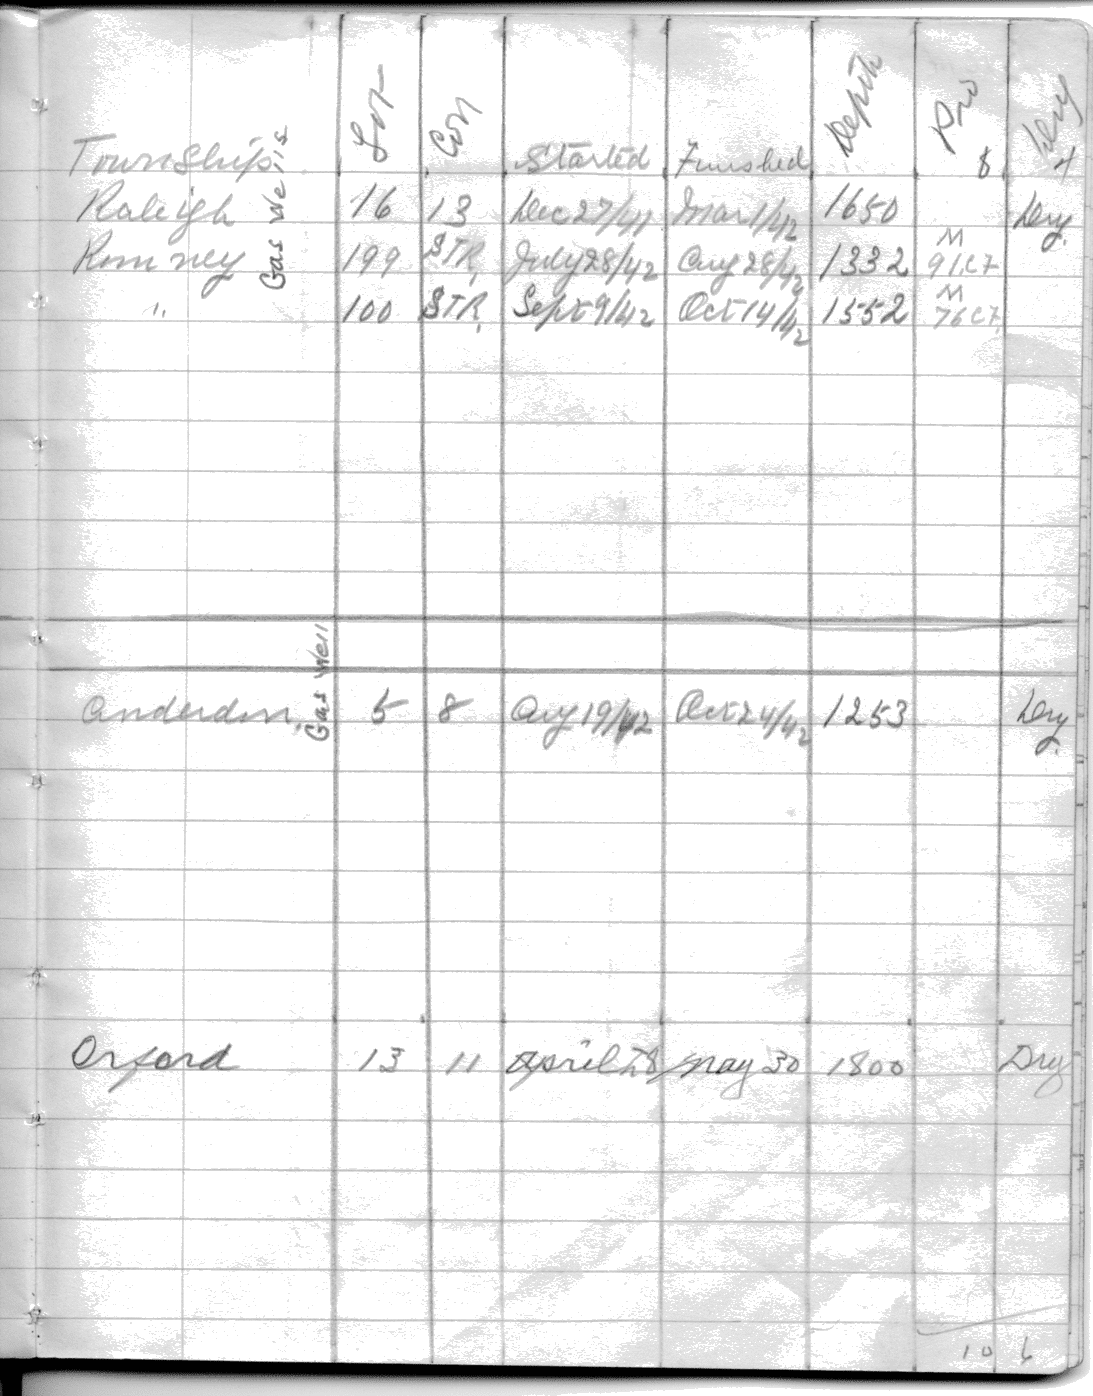 Township Gas Wells Lot Con Started Finished Depth Pro 8 Dry 4
Raleigh 16 13 Dec 27/41 Mar 1/42 1650 Dry.
Romney 199 STR, July 28/42 Aug 28/42 1332 91 M C7
" 100 STR, Sept 9/42 Oct 14/42 1552 76 M C7,
Gas Well
Anderdon, 5 8 Aug 19/42 Oct 24/42 1253 Dry.
Orford 13 11 April 28/ May 30 1800 Dry
10 6